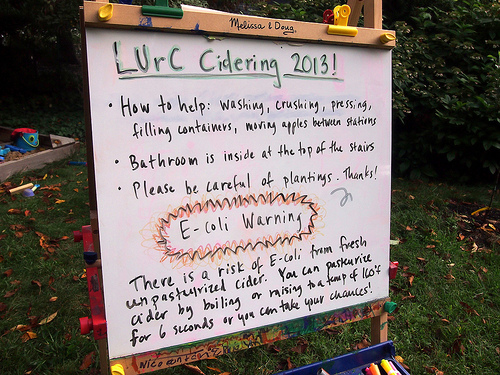 Melissa & Doug
LUrC Cidering 2013!
• How to help: washing, crushing, pressing,
filling containers, moving apples between stations
• Bathroom is inside at the top of the stairs
• Please be careful of plantings. Thanks!
E-Coli Warning
There is a risk of E-Coli from fresh
unpasteurized cider. You can pasteurize
cider by boiling or raising to a temp of 160°F
for 6 seconds or you can take your chances!